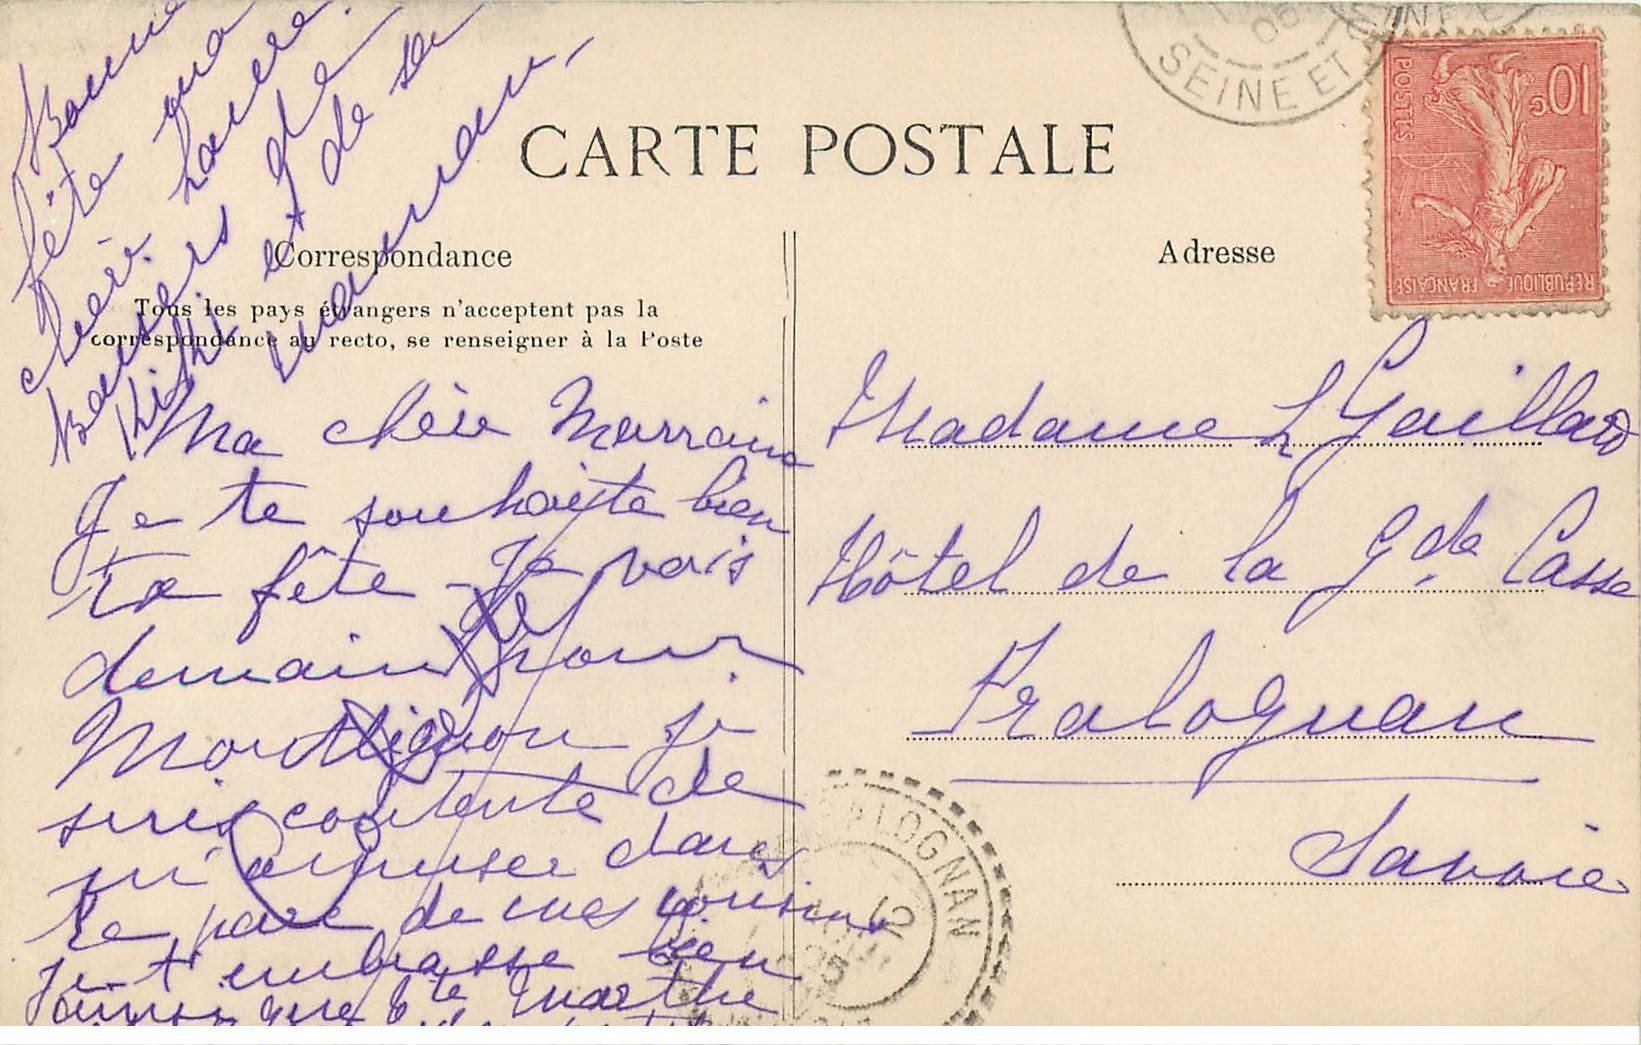 Bonne
fête ma
chère Laure.
Baisers de
Kiki et de sa
maman.
CARTE POSTALE
Correspondance
Tous les pays étrangers n'acceptent pas la
correspondance au recto, se renseigner à la Poste
Ma chère Marraine
Je te souhaite bien
ta fête - Je vais
demain pour
Montlignon je
suis contente de
m'amuser dans
le parc de mes cousins
je t'embrasse bien
ainsi que tte Marthe
Adresse
Madame L Gaillard
Hôtel de la Gde Casse
Pralognan
Savoie
SEINE ET
06
SEINE E
10c
POSTES
REPUBLIQUE FRANÇAISE
PRALOGNAN
12